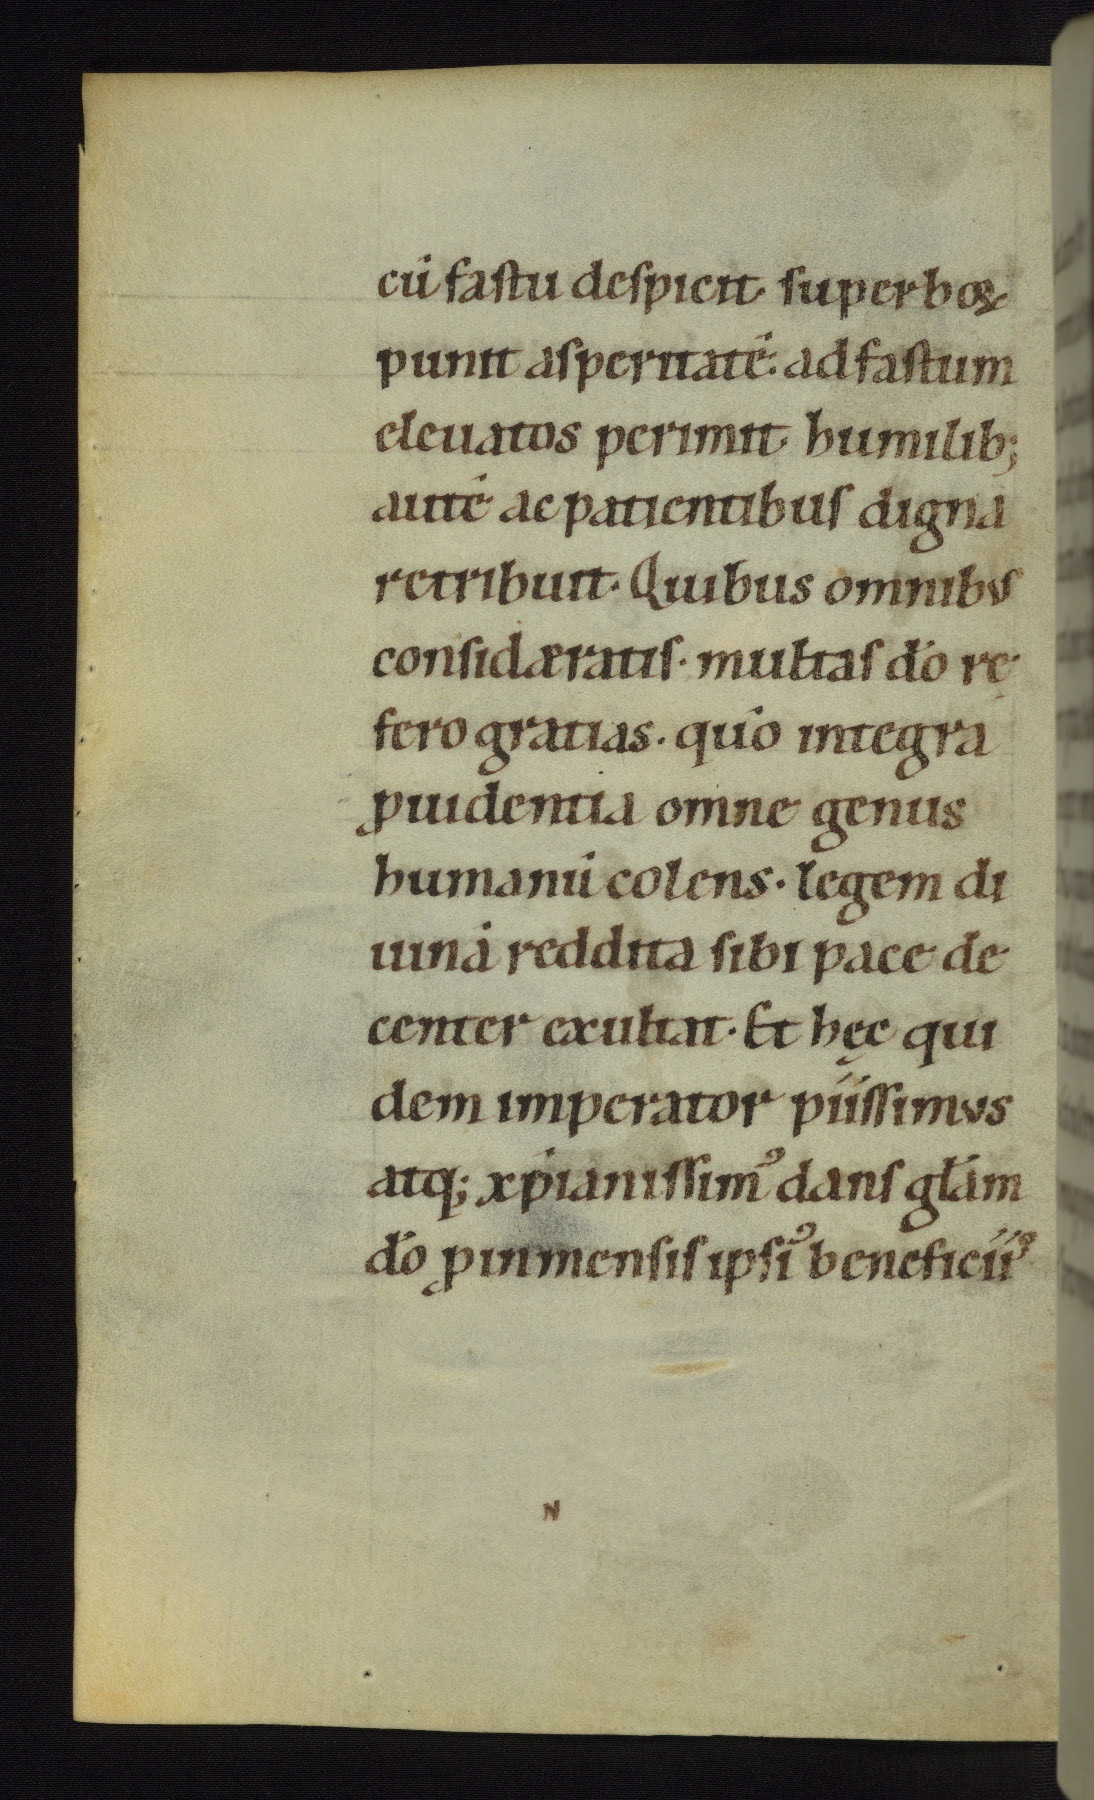 cū fastu despicit· superboꝝ
punit asperitatē· ad fastum
eleuatos perimit· humilib;
autē ac patientibus digna
retribuit· Quibus omnibus
considæratis· multas do͞ re
fero gratias· quo͞ integra
ꝓuidentia omne genus
humanū colens· legem di
uinā reddita sibi pace de
center exultat· Et hęc qui
dem imperator piissimus
atq; xp͞ianissimꝰ dans gl͞am
do͞ ꝓ inmensis ipsiꝰ beneficiiꝰ
N